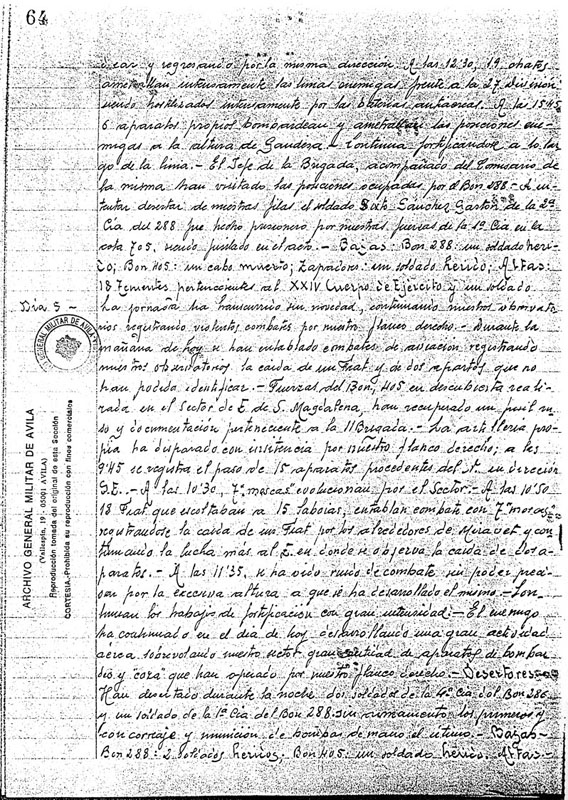 64
y regresando por la misma dirección A las 12'30, 19 chatos
ametrallan intensamente las lineas enemigas frente a la 27 División
siendo hostilizados intensamente por las baterias antiaereas. A las 15'45
6 aparatos propios bombardean y ametrallan las posiciones ene-
migas a la altura de Gandesa - Continua fortificandose a lo lar
go de la linea. - El Jefe de la Brigada, acompañado del Comisario de
la misma han visitado las posiciones ocupadas por el Bon 288 - A in-
tentar desertar de nuestras filas el soldado Sixto Sánchez Gastón de la 2ª
Cia del 288 fue hecho prisionero por nuestras fuerzas de la 1ª Cia en la
cota 705, siendo fusilado en el acto. - Bajas: Bon 288: un soldado heri-
do; Bon 405: un cabo muerto; Zapadores: un soldado herido; Altas:
18 Tenientes pertenecientes al XXIV Cuerpo de Ejército y un soldado
Dia 5 - La jornada ha transcurrido sin novedad, continuando nuestros observato
rios registrando violentos combates por nuestro flanco derecho - Durante la
mañana de hoy se han entablado combates de aviacion registrando
nuestros observatorios la caida de un Fiat y de dos aparatos que no
han podido identificar. - Fuerzas del Bon, 405 en descubierta reali-
zada en el Sector de E. de S. Magdalena, han recuperado un fusil ru
so y documentación perteneciente a la 11 Brigada. - La artilleria pro-
pia ha disparado con insistencia por nuestro flanco derecho; a las
9'45 se registra el paso de 15 aparatos procedentes del en dirección
S.E. - A las 10'30, 7 "moscas" evolucionan por el Sector. - A las 10'50
18 Fiat que escoltaban a 15 Saboias, entablan combate con 7 "moscas"
registrandose la caida de un Fiat por los alrededores de Miravet y con
tinuando la lucha más al E. en donde se observa la caida de dos a-
paratos. - A las 11'35, se ha oido ruido de combate sin poder prec
sar por la excesiva altura a que se ha desarrollado el mismo - Con-
tinuan los trabajos de fortificación con gran intensidad. - El enemigo
ha continuado en el dia de hoy desarrollando una gran actividad
aerea sobrevolando nuestro sector gran cantidad de aparatos de bombar
deo y "caza" que han operado por nuestro flanco derecho - Desertores -
Han desertado durante la noche dos soldados de la 4ª Cia del Bon 286
y un soldado de la 1ª Cia del Bon 288. sin armamento los primeros y
con correaje y munición de bombas de mano el ultimo. - Bajas -
Bon 288: 2 soldados heridos. Bon 405: un soldado herido. Altas. -
GENERAL MILITAR DE AVILA
ARCHIVO GENERAL MILITAR DE AVILA
(Vallespin, 19 - 05001 AVILA)
Reproducción tomada del original de esta Sección
CORTESIA - Prohibida su reproducción con fines comerciales